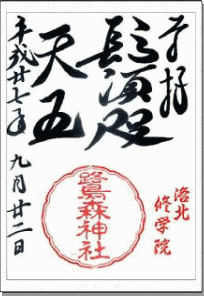 奉拝
鬚咫
天王
平成廿七年九月廿二日
洛北
修学院
鷺森神社